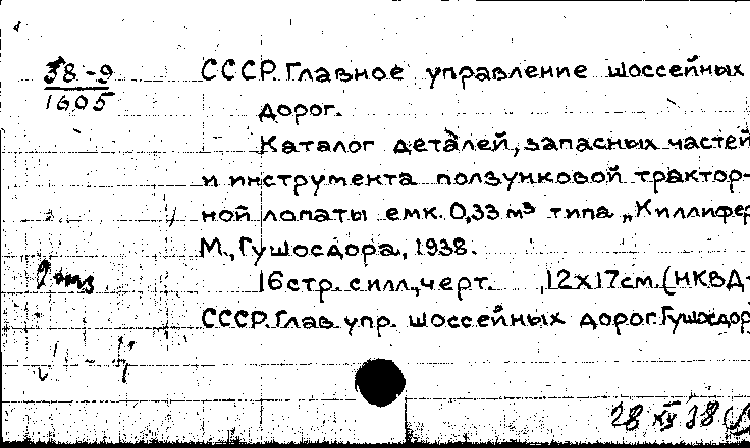 38-9
1605
СССР. Главное управление шоссейных
дорог.
Каталог деталей, запасных частей
и инструмента ползунковой трактор-
ной лопаты емк. 0,33 м³ типа „Киллифер
М., Гушосдора, 1938.
16 стр. с илл., черт. 12х17 см. (НКВД-
СССР. Глав. упр. шоссейных дорог. Гушосдор
2 отз
28 XII 38